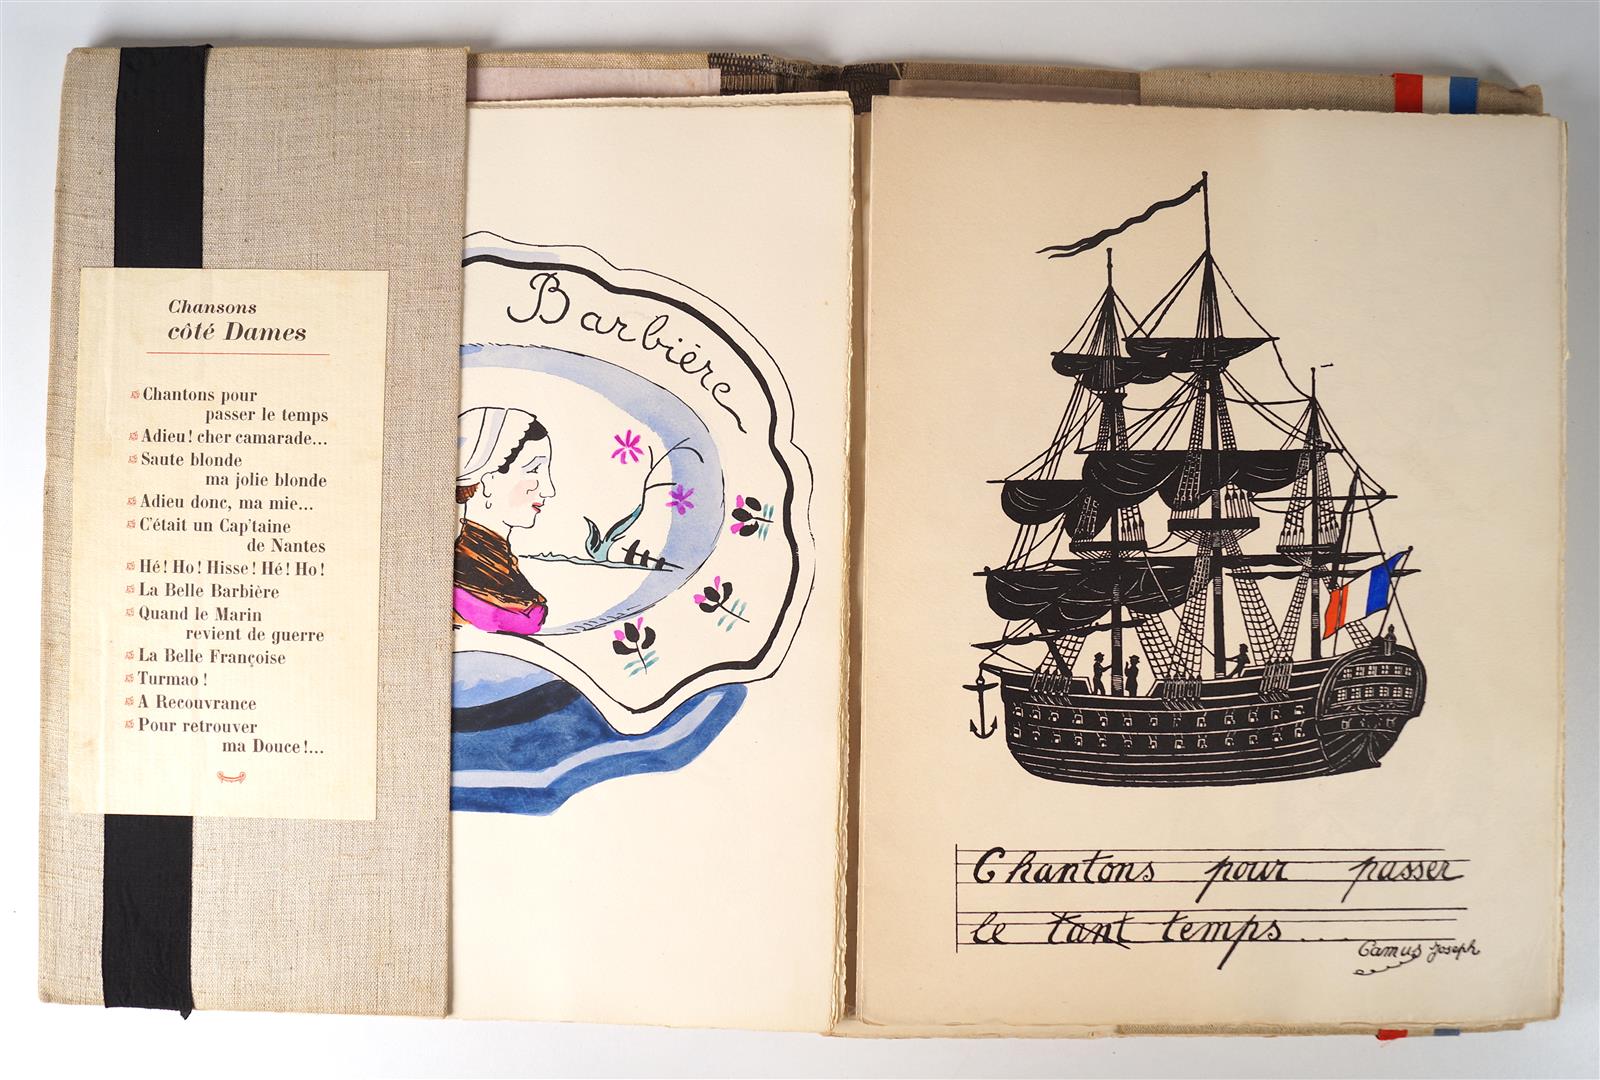 Chansons
côté Dames
Chantons pour
passer le temps
Adieu ! cher camarade...
Saute blonde
ma jolie blonde
Adieu donc, ma mie...
C'était un Cap'taine
de Nantes
Hé ! Ho ! Hisse ! Hé ! Ho !
La Belle Barbière
Quand le Marin
revient de guerre
La Belle Françoise
Turmao !
A Recouvrance
Pour retrouver
ma Douce !...
Barbière
Chantons pour passer
le tant temps....
Camus Joseph